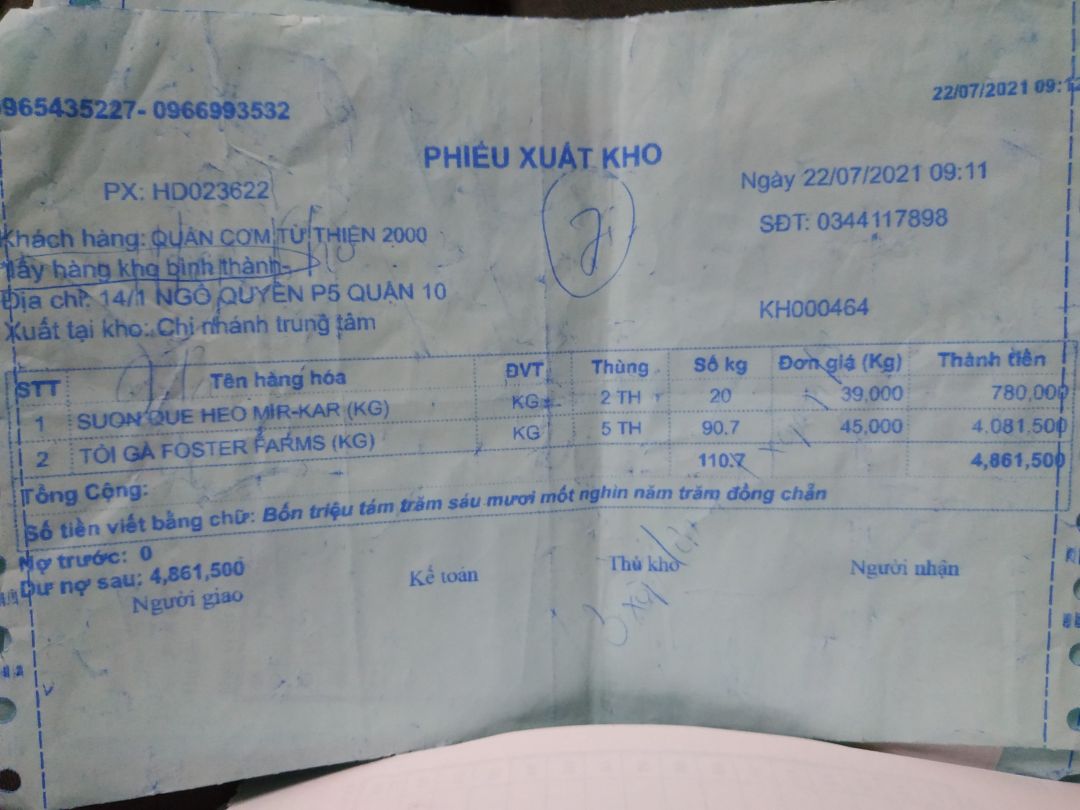 0965435227- 0966993532
22/07/2021 09:1
PHIẾU XUẤT KHO
PX: HD023622
Ngày 22/07/2021 09:11
Khách hàng: QUÁN CƠM TỪ THIỆN 2000
SĐT: 0344117898
lấy hàng kho bình thành
Địa chỉ: 14/1 NGÔ QUYỀN P5 QUẬN 10
KH000464
Xuất tại kho: Chi nhánh trung tâm
STT Tên hàng hóa ĐVT Thùng Số kg Đơn giá (Kg) Thành tiền
1 SUON QUE HEO MIR-KAR (KG) KG 2 TH 20 39,000 780,000
2 TỎI GÀ FOSTER FARMS (KG) KG 5 TH 90.7 45,000 4,081,500
Tổng Cộng: 110.7 4,861,500
Số tiền viết bằng chữ: Bốn triệu tám trăm sáu mươi mốt nghìn năm trăm đồng chẵn
Nợ trước: 0
Dư nợ sau: 4,861,500
Người giao Kế toán Thủ kho Người nhận